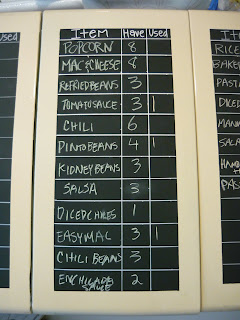 Item Have Used
POPCORN 8
MAC&CHEESE 8
REFRIED BEANS 3
TOMATO SAUCE 3 1
CHILI 6
PINTO BEANS 4 1
KIDNEY BEANS 3
SALSA 3
DICED CHILES 1
EASY MAC 3 1
CHILI BEANS 3
ENCHILADA SAUCE 2
Used
Ite
RICE
BAKE
PAST
DICE
PASTA